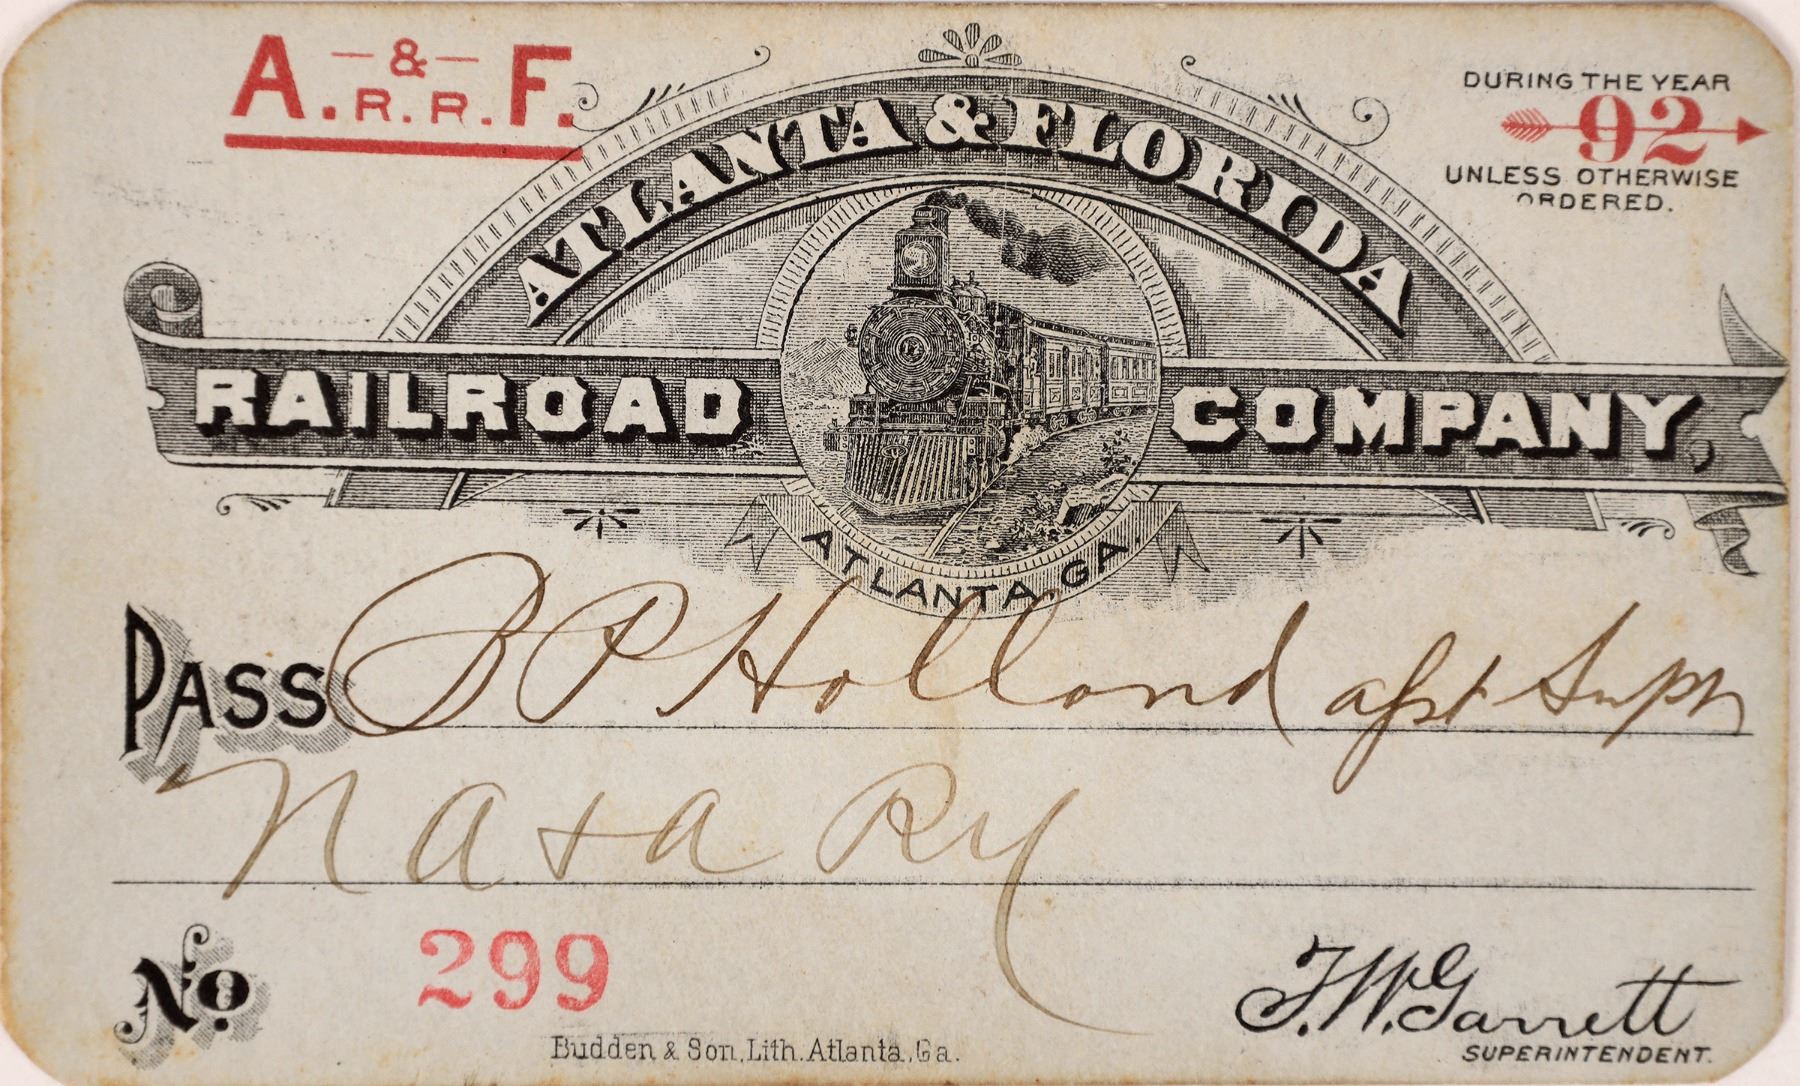 A. -&- F.
R. R.
DURING THE YEAR
92
UNLESS OTHERWISE
ORDERED.
ATLANTA & FLORIDA
RAILROAD COMPANY,
ATLANTA, GA.
PASS B P Holland asst Supt
N A & A Ry
No. 299
T. W. Garrett
SUPERINTENDENT.
Budden & Son, Lith. Atlanta, Ga.